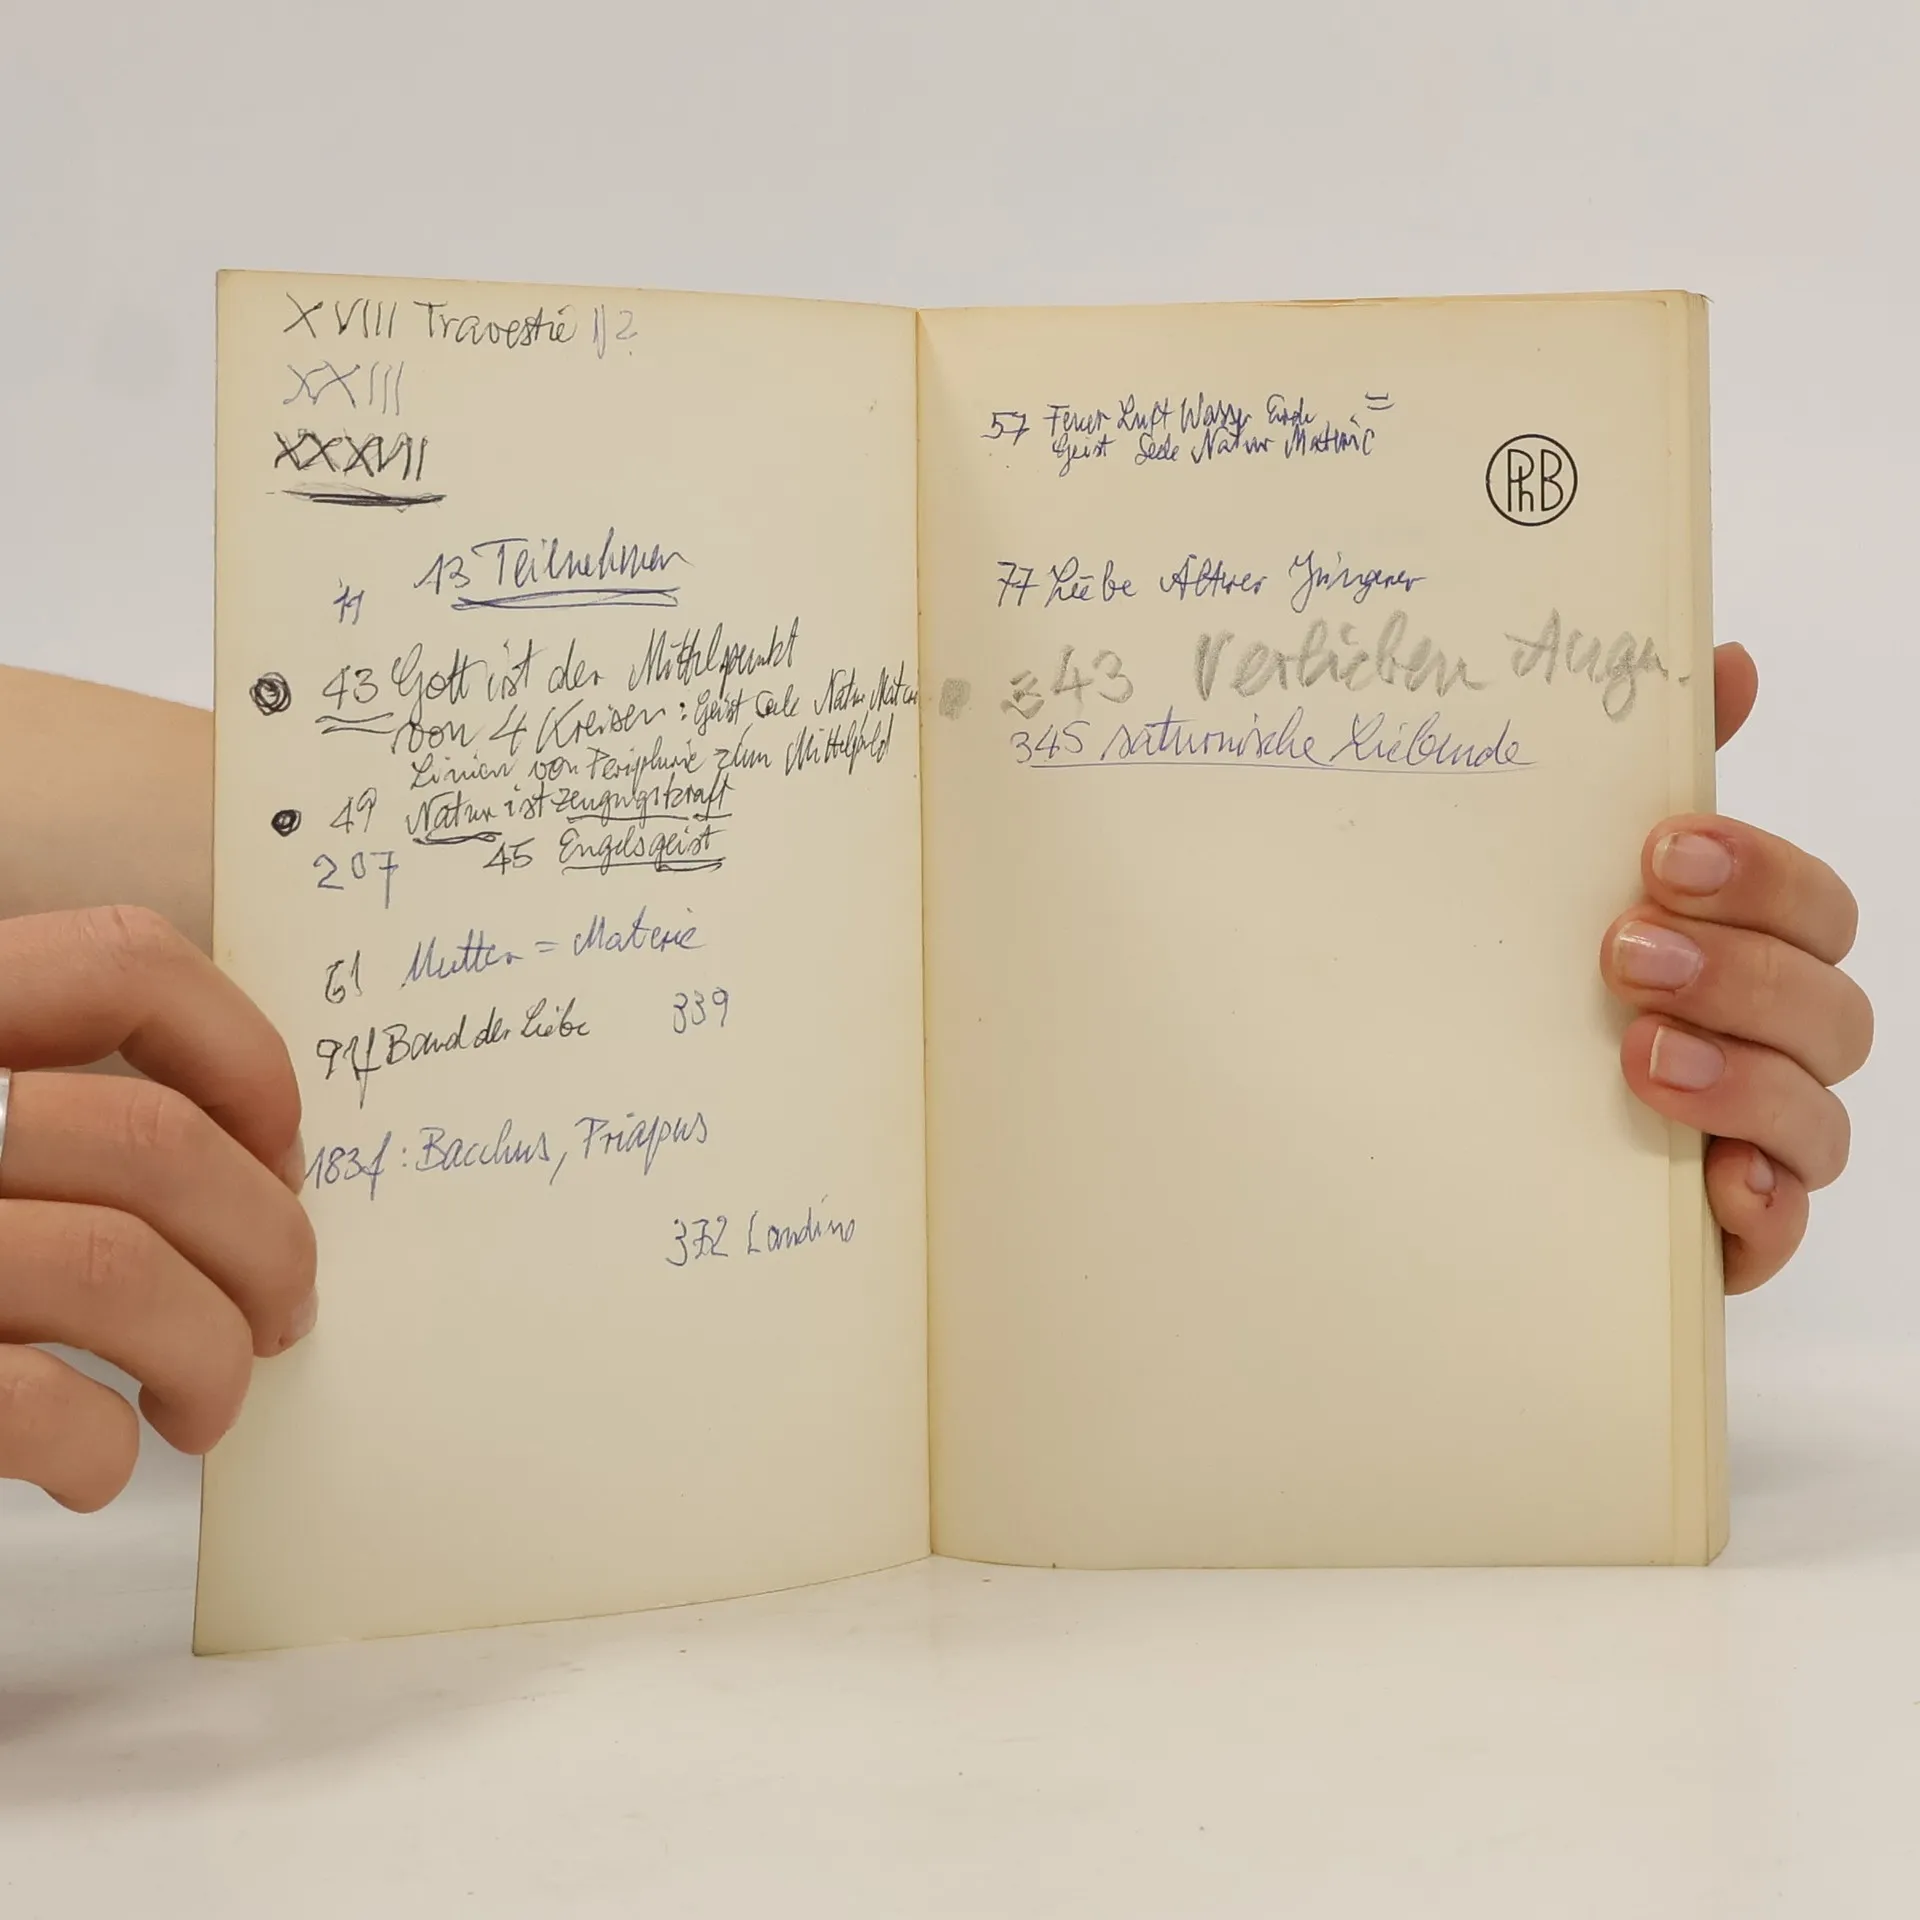 XVIII Travestie
XXIII
XXXVII
13 Teilnehmer
11
43 Gott ist der Mittelpunkt
von 4 Kreisen: Geist Seele Natur Mater
Linien von Peripherie zum Mittelpkt
49 Natur ist Zeugungskraft
207 45 Engelsgeist
61 Mutter = Materie
91f Band der Liebe 339
183f: Bacchus, Priapus
372 Landino
57 Feuer Luft Wasser Erde =
Geist Seele Natur Materie
PhB
77 Liebe Älterer Jüngerer
243 Verlieben Augen
345 saturnische Liebende